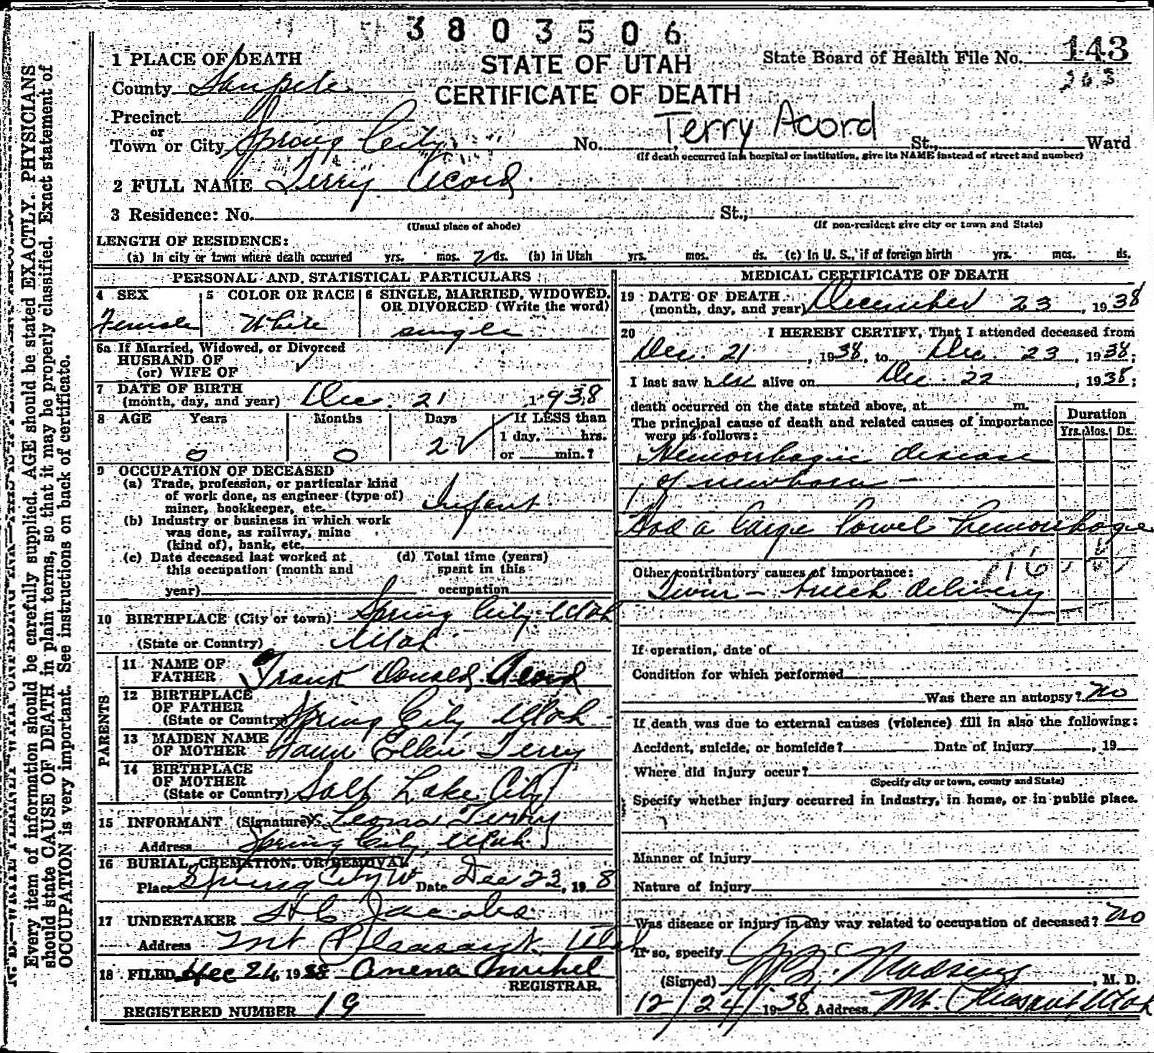 3803506
STATE OF UTAH
CERTIFICATE OF DEATH
State Board of Health File No. 143
263
1 PLACE OF DEATH
County Sanpete
Precinct
or
Town or City Spring City No. Terry Acord St., Ward
(If death occurred in a hospital or institution, give its NAME instead of street and number)
2 FULL NAME Terry Acord
3 Residence: No. St.,
(Usual place of abode) (If non-resident give city or town and State)
LENGTH OF RESIDENCE:
(a) In city or town where death occurred yrs. mos. 2 ds. (b) In Utah yrs. mos. ds. (c) In U. S., if of foreign birth yrs. mos. ds.
PERSONAL AND STATISTICAL PARTICULARS
4 SEX
Female
5 COLOR OR RACE
White
6 SINGLE, MARRIED, WIDOWED,
OR DIVORCED (Write the word)
single
6a If Married, Widowed, or Divorced
HUSBAND OF
(or) WIFE OF
7 DATE OF BIRTH
(month, day, and year) Dec. 21 1938
8 AGE Years Months Days If LESS than
0 0 2 1 day, hrs.
or min.?
9 OCCUPATION OF DECEASED
(a) Trade, profession, or particular kind
of work done, as engineer (type of)
miner, bookkeeper, etc. Infant
(b) Industry or business in which work
was done, as railway, mine
(kind of), bank, etc.
(c) Date deceased last worked at
this occupation (month and
year)
(d) Total time (years)
spent in this
occupation
10 BIRTHPLACE (City or town) Spring City Utah
(State or Country) Utah
PARENTS
11 NAME OF
FATHER Frank Donald Acord
12 BIRTHPLACE
OF FATHER
(State or Country) Spring City Utah
13 MAIDEN NAME
OF MOTHER Ellen Terry
14 BIRTHPLACE
OF MOTHER
(State or Country) Salt Lake City
15 INFORMANT (Signature) Leona Terry
Address Spring City, Utah
16 BURIAL, CREMATION, OR REMOVAL
Place Spring City Date Dec 23, 19 8
17 UNDERTAKER Jacobs
Address Mt Pleasant Utah
18 FILED Dec 24 1938
REGISTRAR.
REGISTERED NUMBER 19
MEDICAL CERTIFICATE OF DEATH
19 DATE OF DEATH
(month, day, and year) December 23, 1938
20 I HEREBY CERTIFY, That I attended deceased from
Dec. 21, 1938, to Dec. 23, 1938;
I last saw her alive on Dec. 22, 1938;
death occurred on the date stated above, at m.
The principal cause of death and related causes of importance
were as follows:
Duration
Yrs. Mos. Ds.
Hemorrhagic disease
of newborn -
Had a large bowel hemorrhage
Other contributory causes of importance:
161
Twin - breech delivery
If operation, date of
Condition for which performed
Was there an autopsy? no
If death was due to external causes (violence) fill in also the following:
Accident, suicide, or homicide? Date of injury , 19
Where did injury occur?
(Specify city or town, county and State)
Specify whether injury occurred in industry, in home, or in public place.
Manner of injury
Nature of injury
Was disease or injury in any way related to occupation of deceased? no
If so, specify
(Signed) Madsen, M. D.
12/24/1938 Address Mt. Pleasant, Utah
Every item of information should be carefully supplied. AGE should be stated EXACTLY. PHYSICIANS
should state CAUSE OF DEATH in plain terms, so that it may be properly classified. Exact statement of
OCCUPATION is very important. See instructions on back of certificate.